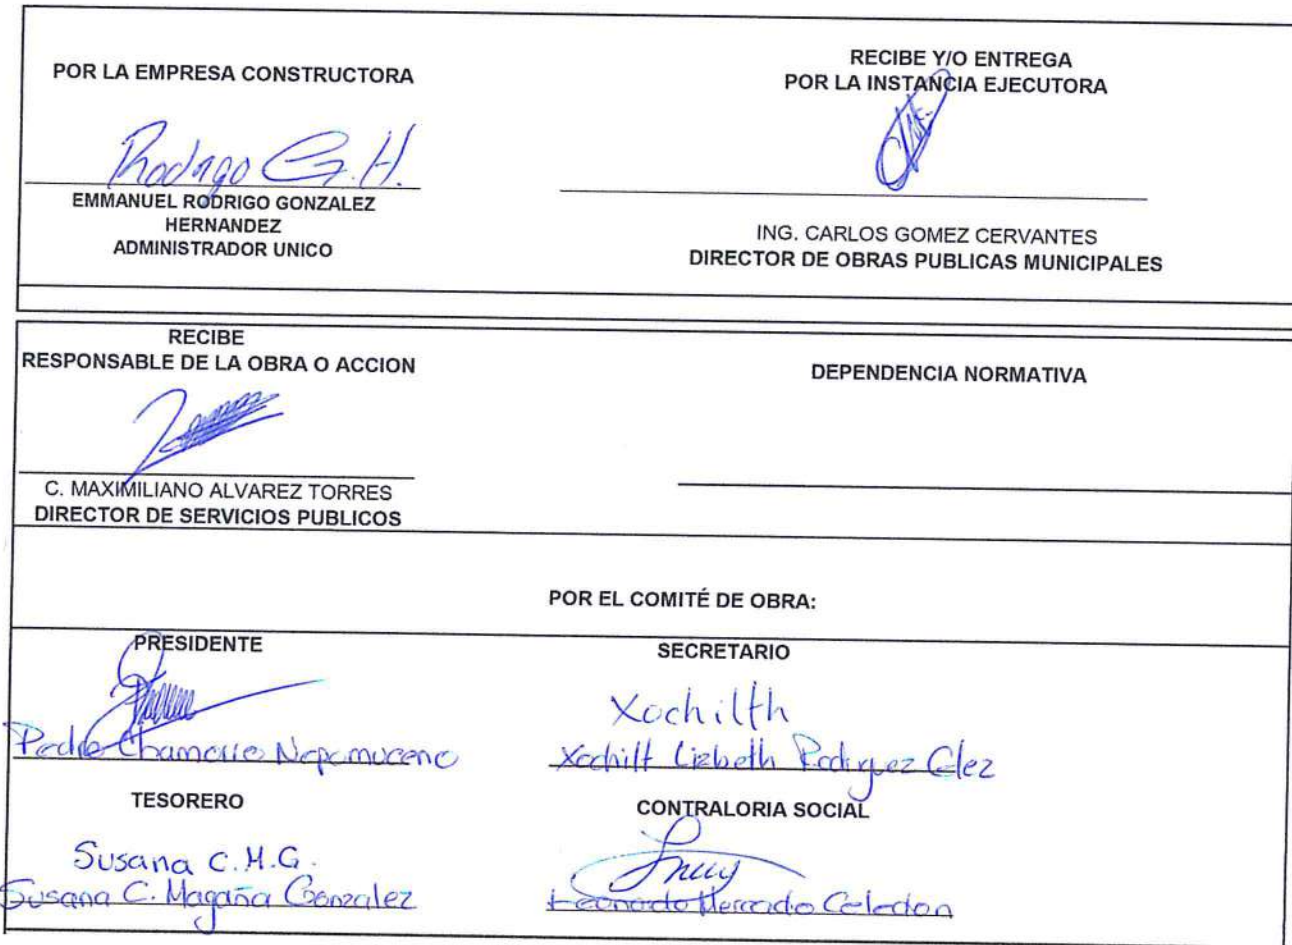 POR LA EMPRESA CONSTRUCTORA
Rodrigo G. H.
EMMANUEL RODRIGO GONZALEZ
HERNANDEZ
ADMINISTRADOR UNICO
RECIBE Y/O ENTREGA
POR LA INSTANCIA EJECUTORA
ING. CARLOS GOMEZ CERVANTES
DIRECTOR DE OBRAS PUBLICAS MUNICIPALES
RECIBE
RESPONSABLE DE LA OBRA O ACCION
C. MAXIMILIANO ALVAREZ TORRES
DIRECTOR DE SERVICIOS PUBLICOS
DEPENDENCIA NORMATIVA
POR EL COMITÉ DE OBRA:
PRESIDENTE
Pedro Chamorro Nepomuceno
SECRETARIO
Xochilth
Xochilt Lizbeth Rodriguez Glez
TESORERO
Susana C.M.G.
Susana C. Magaña Gonzalez
CONTRALORIA SOCIAL
Leonardo Mercado Celedon